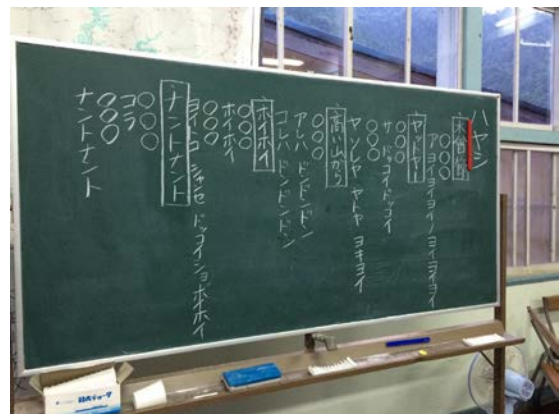 ハヤシ
木曽節
○○○
アヨイヨイヨイノヨイヨイヨイ
ヤッサヤー
○○○
サ ドッコイドッコイ
○○○
ヤンレヤ ヤトヤ ヨキヨイ
高い山から
○○○
アレハ ドンドンドン
コレハ ドンドンドンドン
ホイホイ
○○○
ホイホイ
○○○
ヨイトコ シャンセ ドッコイショ ホイホイ
ナントナント
○○○
コラ
○○○
ナントナント